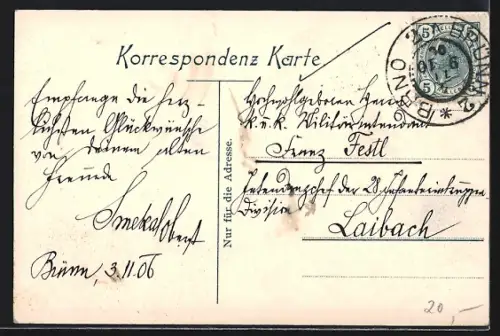 Korrespondenz Karte
Empfange die herz-
lichsten Glückwünsche
von deinem alten
Freunde
Smekal Oberst
Brünn, 3.11.06
Nur für die Adresse.
Hochwohlgeboren Herrn
k.u.k. Militärintendant
Franz Festl
Intendanzchef der 28 Infanterietruppen
Division
Laibach
BRÜNN
BRNO
5
5
20,-